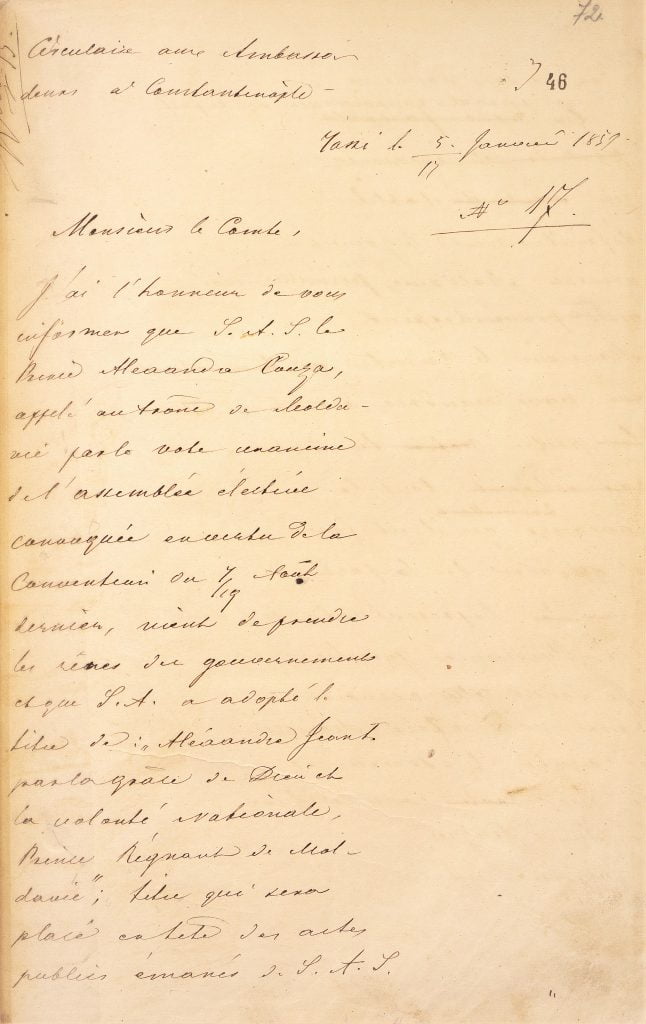 72
Circulaire aux Ambassa
deurs à Constantinople -
46
Jassi le 5/17 Janvier 1859
No 17.
Monsieur le Comte,
J'ai l'honneur de vous
informer que S. A. S. le
Prince Alexandre Couza,
appelé au trône de Molda-
vie par le vote unanime
de l'assemblée élective
convoquée en vertu de la
Convention du 7/19 Août
dernier, vient de prendre
les rênes du gouvernement
et que S. A. a adopté le
titre de: „Alexandre Jean I.
par la grâce de Dieu et
la volonté Nationale,
Prince Régnant de Mol-
davie"; titre qui sera
placé en tête des actes
publics émanés de S. A. S.